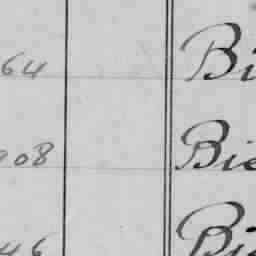 64 Bi
908 Bie
46 Bi